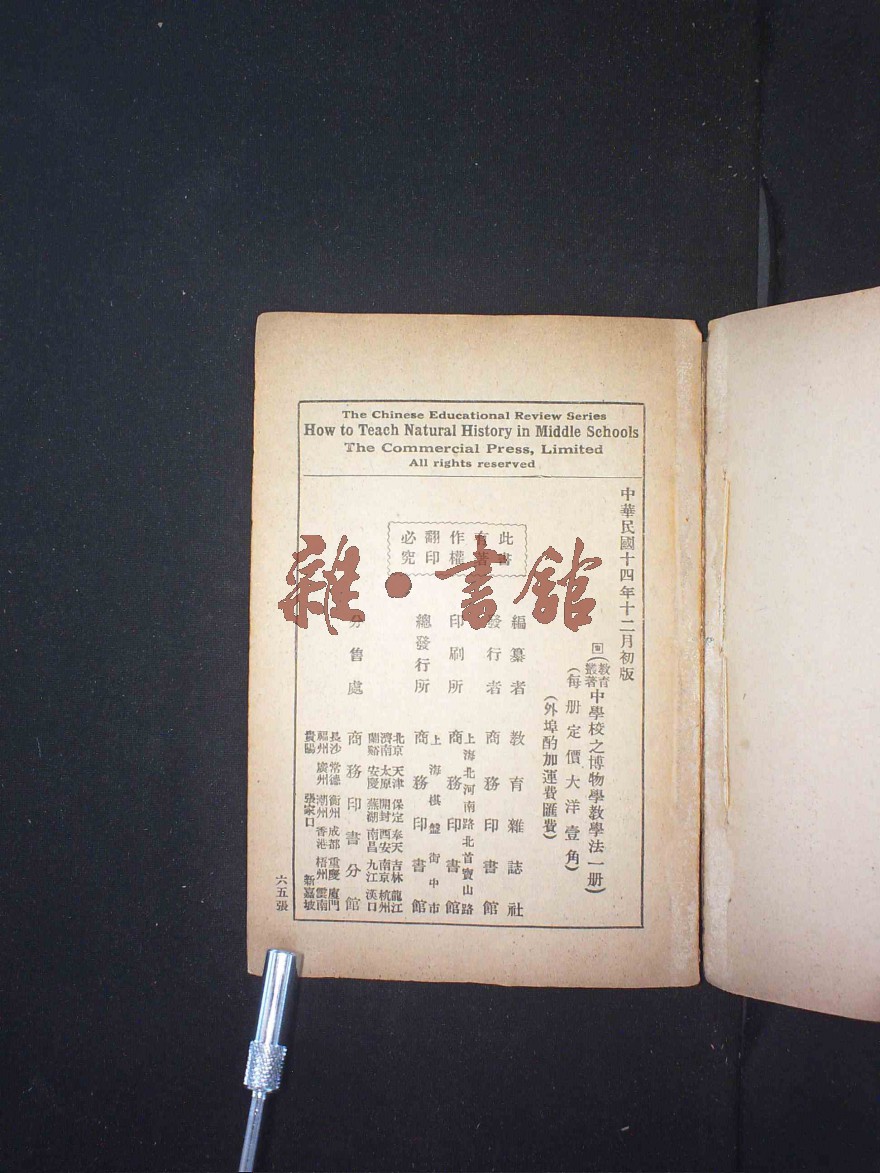 The Chinese Educational Review Series
How to Teach Natural History in Middle Schools
The Commercial Press, Limited
All rights reserved
中華民國十四年十二月初版
(教育叢著)中學校之博物學教學法一册)
(每册定價大洋壹角)
(外埠酌加運費匯費)
此書
有著
作權
翻印
必究
編纂者 教育雜誌社
發行者 商務印書館
上海北河南路北首寶山路
印刷所 商務印書館
上海棋盤街中市
總發行所 商務印書館
北京 天津 保定 奉天 吉林 龍江
濟南 太原 開封 西安 南京 杭州
蘭谿 安慶 蕪湖 南昌 九江 漢口
分售處 商務印書分館
長沙 常德 衡州 成都 重慶 廈門
福州 廣州 潮州 香港 梧州 雲南
貴陽 張家口 新嘉坡
六五張
雜·書館